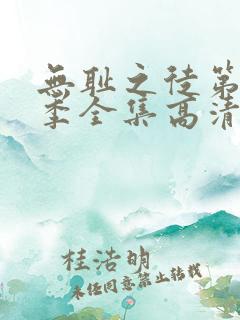 無耻之徒第
季全集高清
桂浩明
未经同意禁止转载